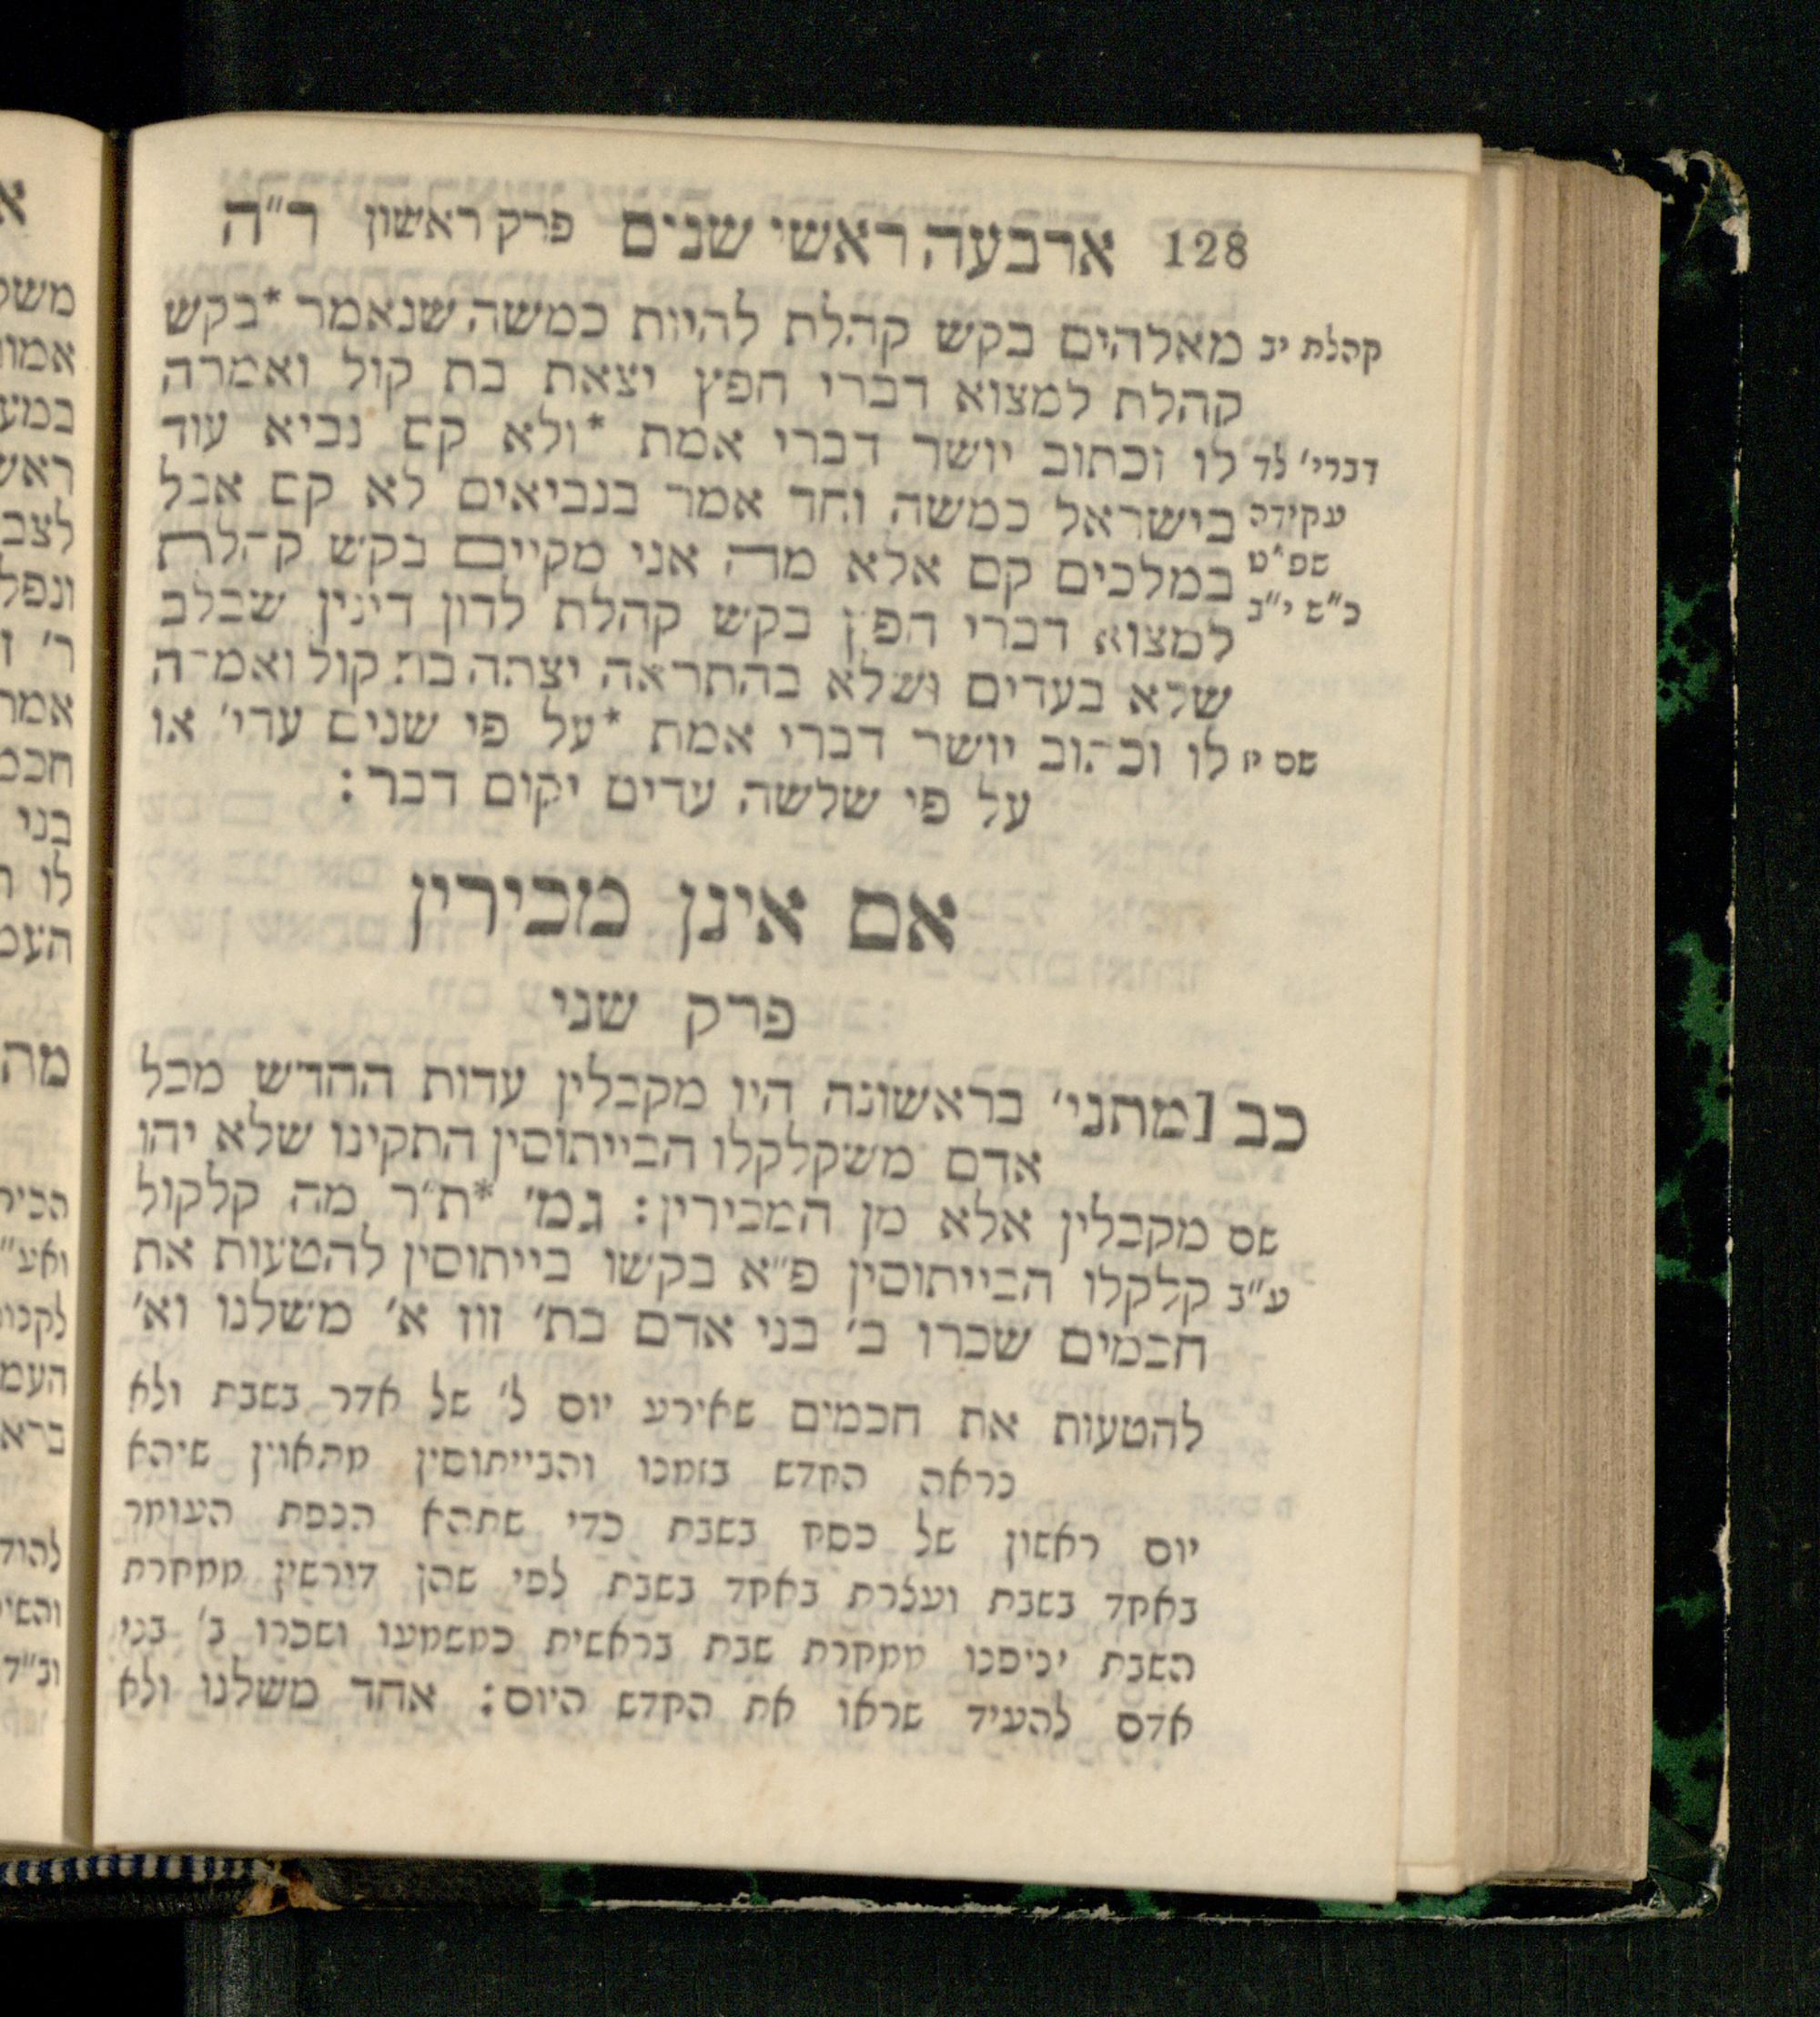 128 ארבעה ראשי שנים פרק ראשון ר"ה
קהלת יב מאלהים בקש קהלת להיות כמשה שנאמר *בקש
קהלת למצוא דברי חפץ יצאת בת קול ואמרה
דברי' לד לו וכתוב יושר דברי אמת *ולא קם נביא עוד
עקידה בישראל כמשה וחד אמר בנביאים לא קם אבל
במלכים קם אלא מה אני מקיים בקש קהלת
כ"ש י"ב למצוא דברי חפץ בקש קהלת לדון דינין שבלב
שלא בעדים ושלא בהתראה יצתה בת קול ואמרה
שם לו וכתוב יושר דברי אמת *על פי שנים עדי' או
על פי שלשה עדים יקום דבר:
אם אינן מכירין
פרק שני
כב [מתני' בראשונה היו מקבלין עדות החדש מכל
אדם משקלקלו הבייתוסין התקינו שלא יהו
שם מקבלין אלא מן המכירין: גמ' *ת"ר מה קלקול
ע"ב קלקלו הבייתוסין פ"א בקשו בייתוסין להטעות את
חכמים שכרו ב' בני אדם בת' זוז א' משלנו וא'
להטעות את חכמים שאירע יום ל' של אדר בשבת ולא
נראה החדש בזמנו והבייתוסין מתאוין שיהא
יום ראשון של פסח בשבת כדי שתהא הנפת העומר
באחד בשבת ועצרת באחד בשבת לפי שהן דורשין ממחרת
השבת יניפנו ממחרת שבת בראשית כמשמעו ושכרו ב' בני
אדם להעיד שראו את החדש היום: אחד משלנו ולא